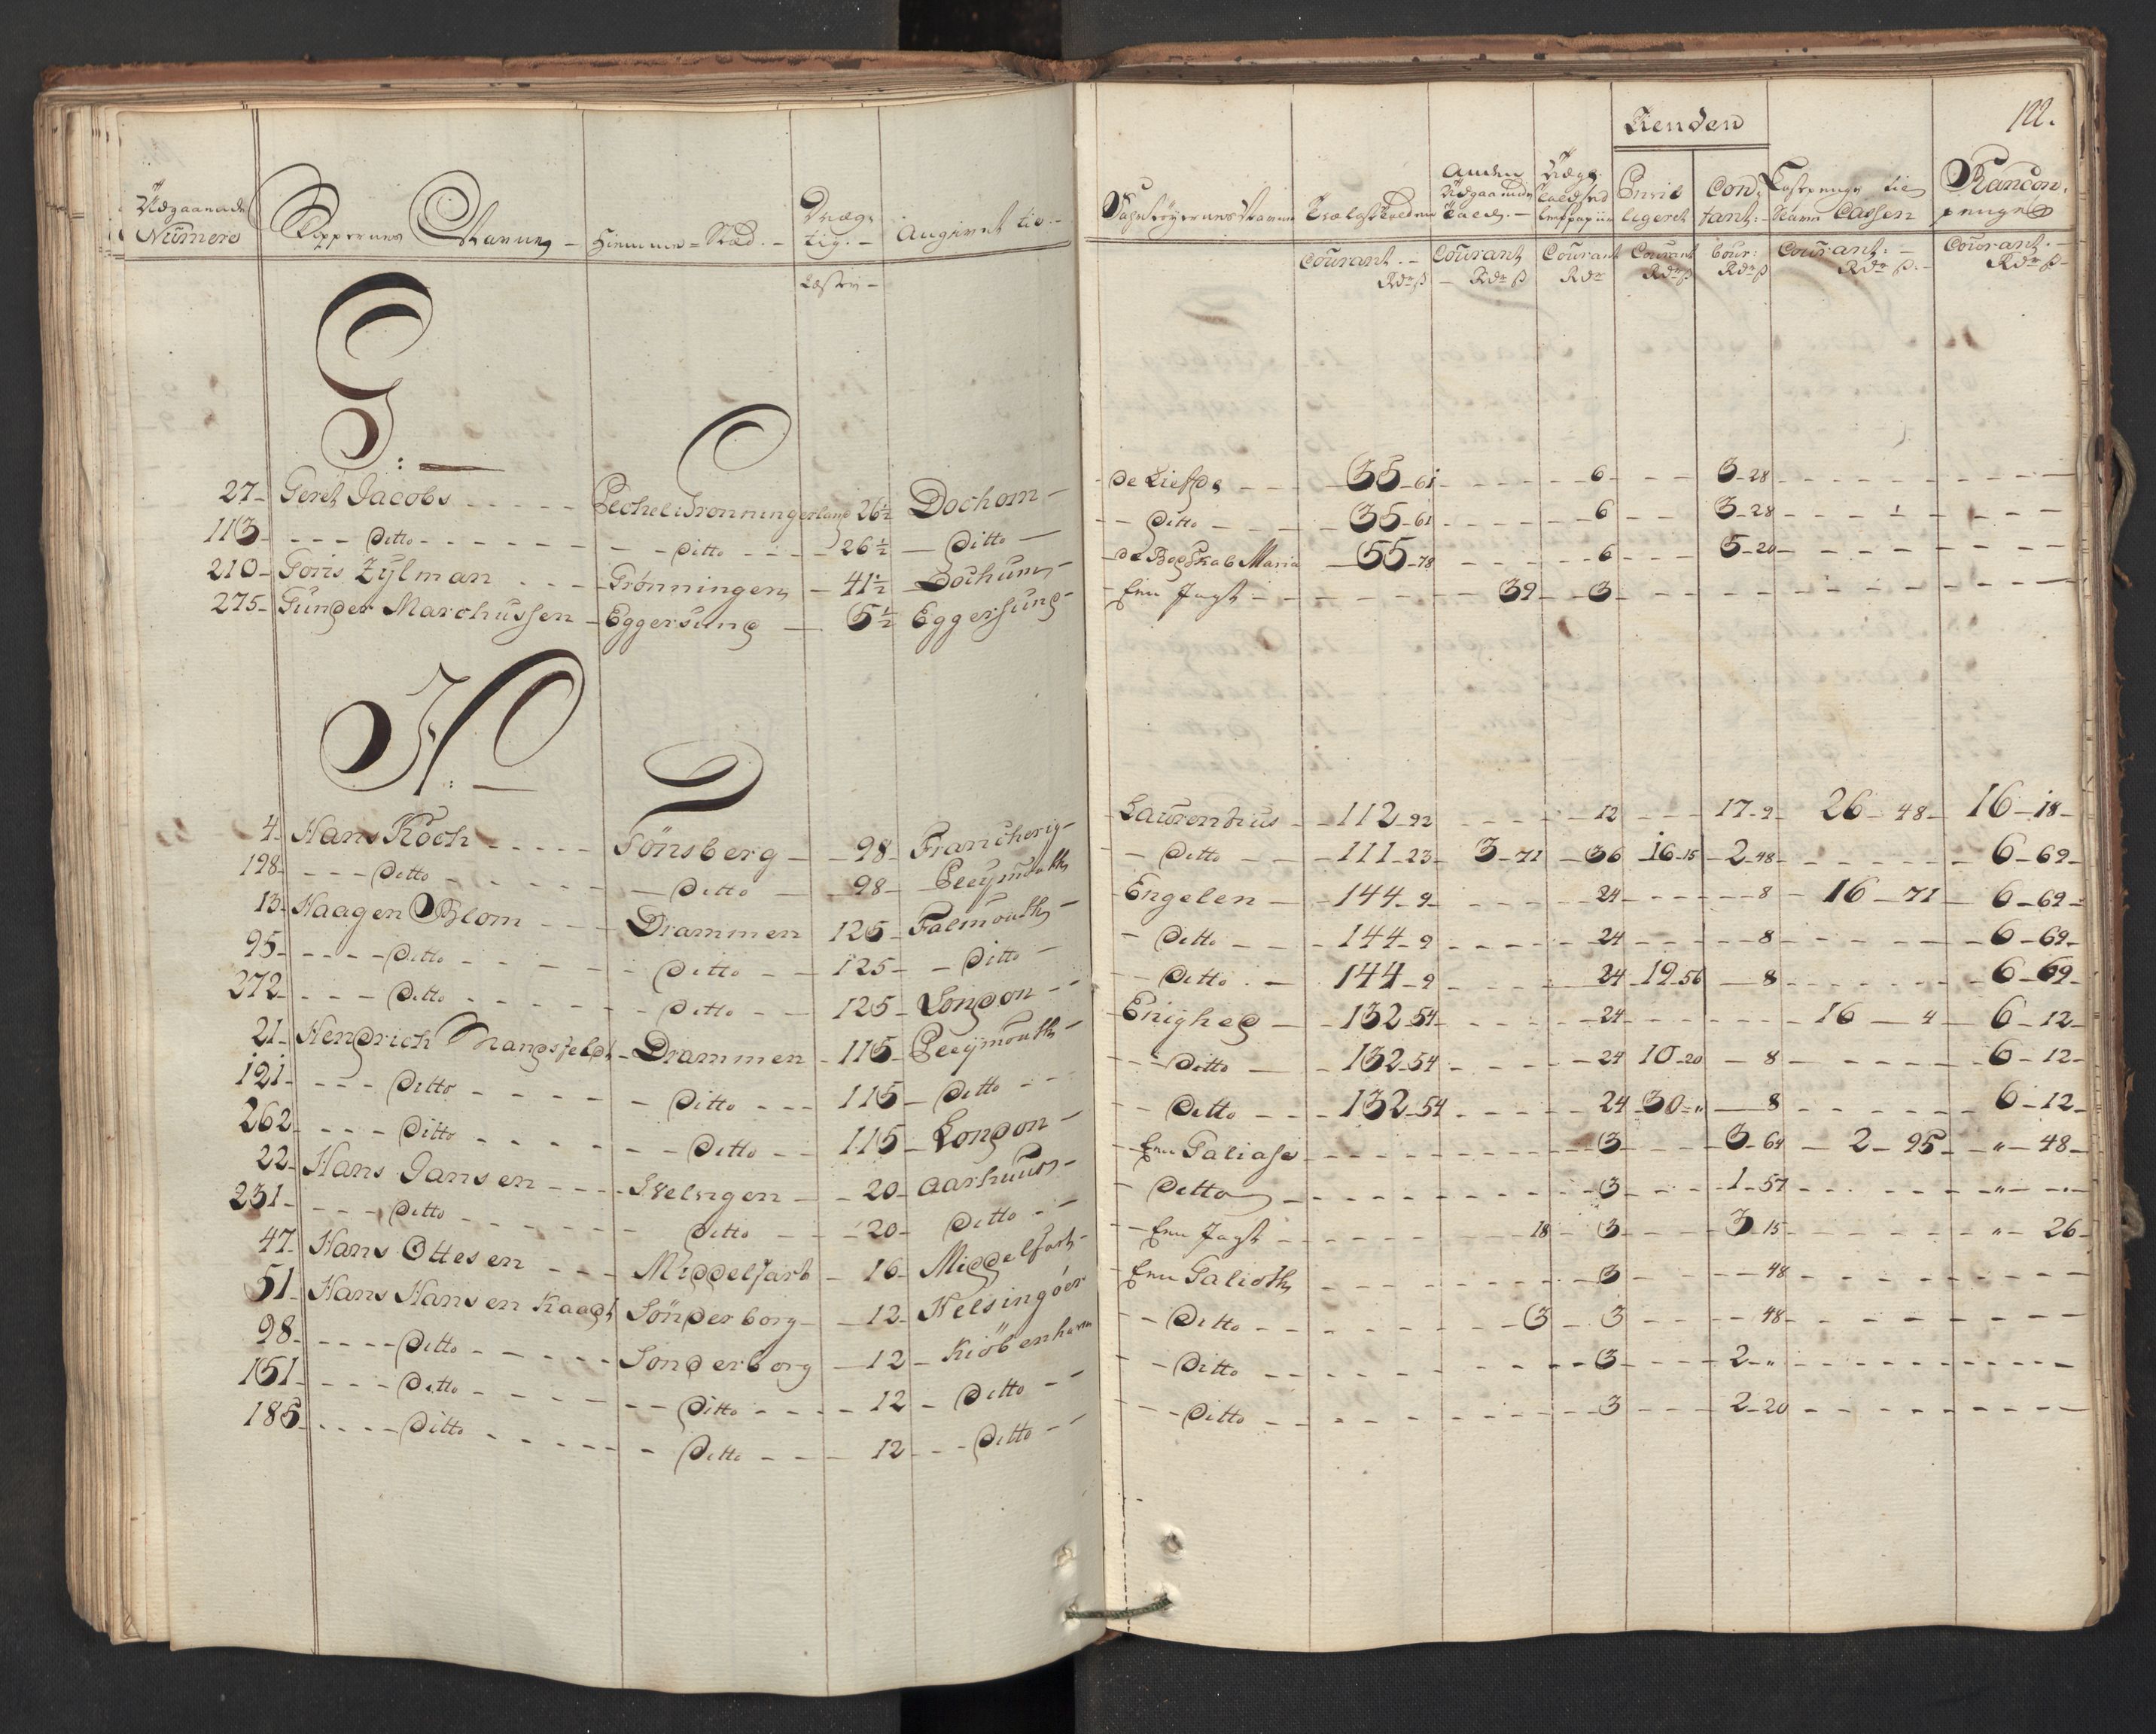 122.
Udgaaende Numero
Skippernes Navne
Hiemme-Stæd.
Drægtig.
Angivet til
Fahrtøyernes Navne
Anden Udgaaende Told.
Kiendes
Privilegeret
Contant:
Cassen
Rancon penge
Læster
Courant. Rdr ß
Courant Rdr ß
Courant Rdr
Courant Rdr ß
Cour: Rdr ß
Courant: Rdr ß
Courant. Rdr ß
G:
27 Geret Jacobs 26½ Dochom de Liefde 35-61 6 3-28
113 Ditto Ditto 26½ Ditto Ditto 35-61 6 3-28
210 Goris Zylman Grønningen 41½ Dochum de Bogskab Maria 55-78 6 5-20
275 Gunder Marchussen Eggersund 5½ Eggersund Een Jagt 39 3
H:
4 Hans Koch Tönsberg 98 Laurentius 112-92 12 17-9 26-48 16-18
198 Ditto Ditto 98 Pleymouth Ditto 111-23 3-71 36 16-15 2-48 6-69
13 Haagen Blom Drammen 125 Falmouth Engelen 144-9 24 8 16-71 6-69
95 Ditto Ditto 125 Ditto Ditto 144-9 24 8 6-69
272 Ditto Ditto 125 London Ditto 144-9 24 19-56 8 6-69
21 Hendrich Drammen 115 Pleymouth Enighed 132-54 24 16-4 6-12
121 Ditto Ditto 115 Ditto Ditto 132-54 24 10-20 8 6-12
262 Ditto Ditto 115 London Ditto 132-54 24 30-" 8 6-12
22 Hans Jansen Svelvigen 20 Aarhuus Een Galiase 3 3-64 2-95 "-48
231 Ditto Ditto 20 Ditto Ditto 3 1-57 "-"
47 Hans Ottesen Middelfart 16 Middelfart Een Jagt 18 3 3-15 "-26
51 Hans Hansen Kaadt Sönderborg 12 Helsingöer Een Galioth 3 48
98 Ditto Sonderborg 12 Kiöbenhavn Ditto 3 3 48
151 Ditto Ditto 12 Ditto Ditto 3 2-"
185 Ditto Ditto 12 Ditto Ditto 3 2-20